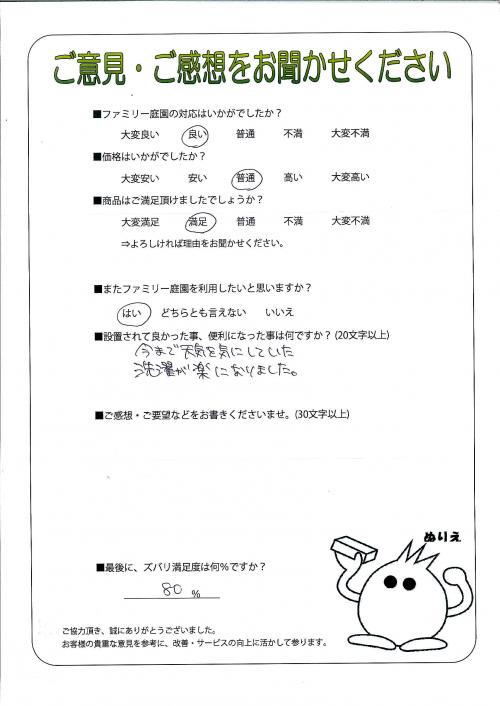 ご意見・ご感想をお聞かせください
■ファミリー庭園の対応はいかがでしたか？
大変良い 良い 普通 不満 大変不満
■価格はいかがでしたか？
大変安い 安い 普通 高い 大変高い
■商品はご満足頂けましたでしょうか？
大変満足 満足 普通 不満 大変不満
⇒よろしければ理由をお聞かせください。
■またファミリー庭園を利用したいと思いますか？
はい どちらとも言えない いいえ
■設置されて良かった事、便利になった事は何ですか？(20文字以上)
今まで天気を気にしていた
洗濯が楽になりました。
■ご感想・ご要望などをお書きくださいませ。(30文字以上)
ぬりえ
■最後に、ズバリ満足度は何％ですか？
80 ％
ご協力頂き、誠にありがとうございました。
お客様の貴重な意見を参考に、改善・サービスの向上に活かして参ります。